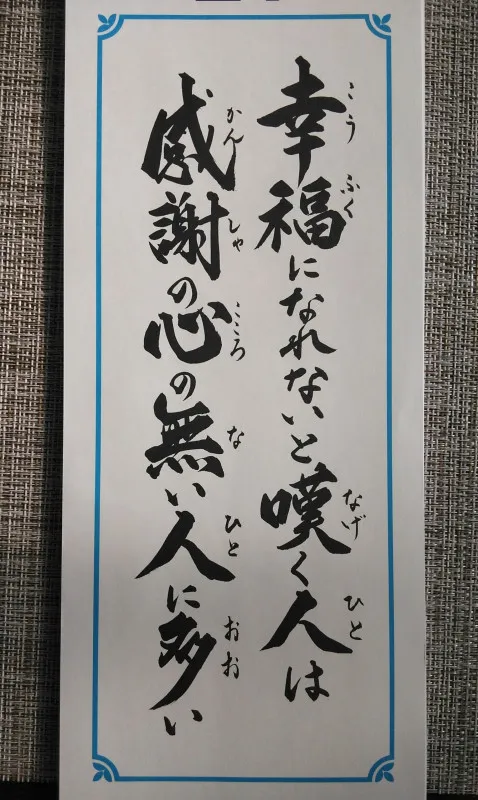 幸福になれないと嘆く人は
こうふく なげ ひと
感謝の心の無い人に多い
かんしゃ こころ な ひと おお